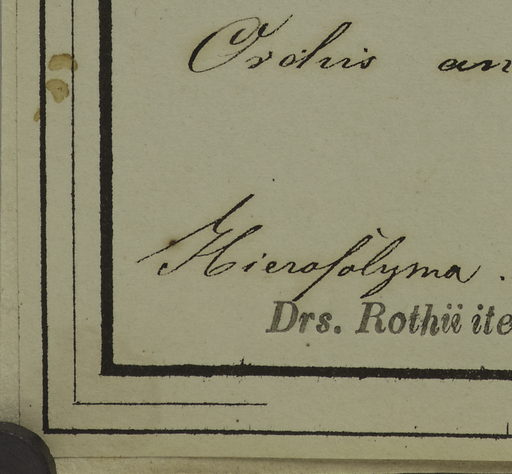 Orchis an
Hierosolyma.
Drs. Rothii ite